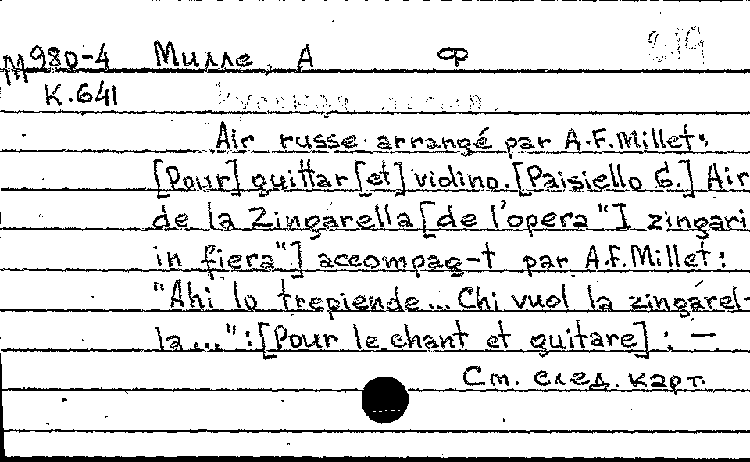 М980-4 Милле, А Ф 219
К.641 Русская песня.
Air russe arrangé par A.F.Millet:
[Pour] guittar [et] violino. [Paisiello G.] Air
de la Zingarella [de l'opera "I zingari
in fiera"] accompag-t par A.F.Millet:
"Ahi lo trepiende... Chi vuol la zingarel-
la...":[Pour le chant et guitare]: —
См. след. карт.